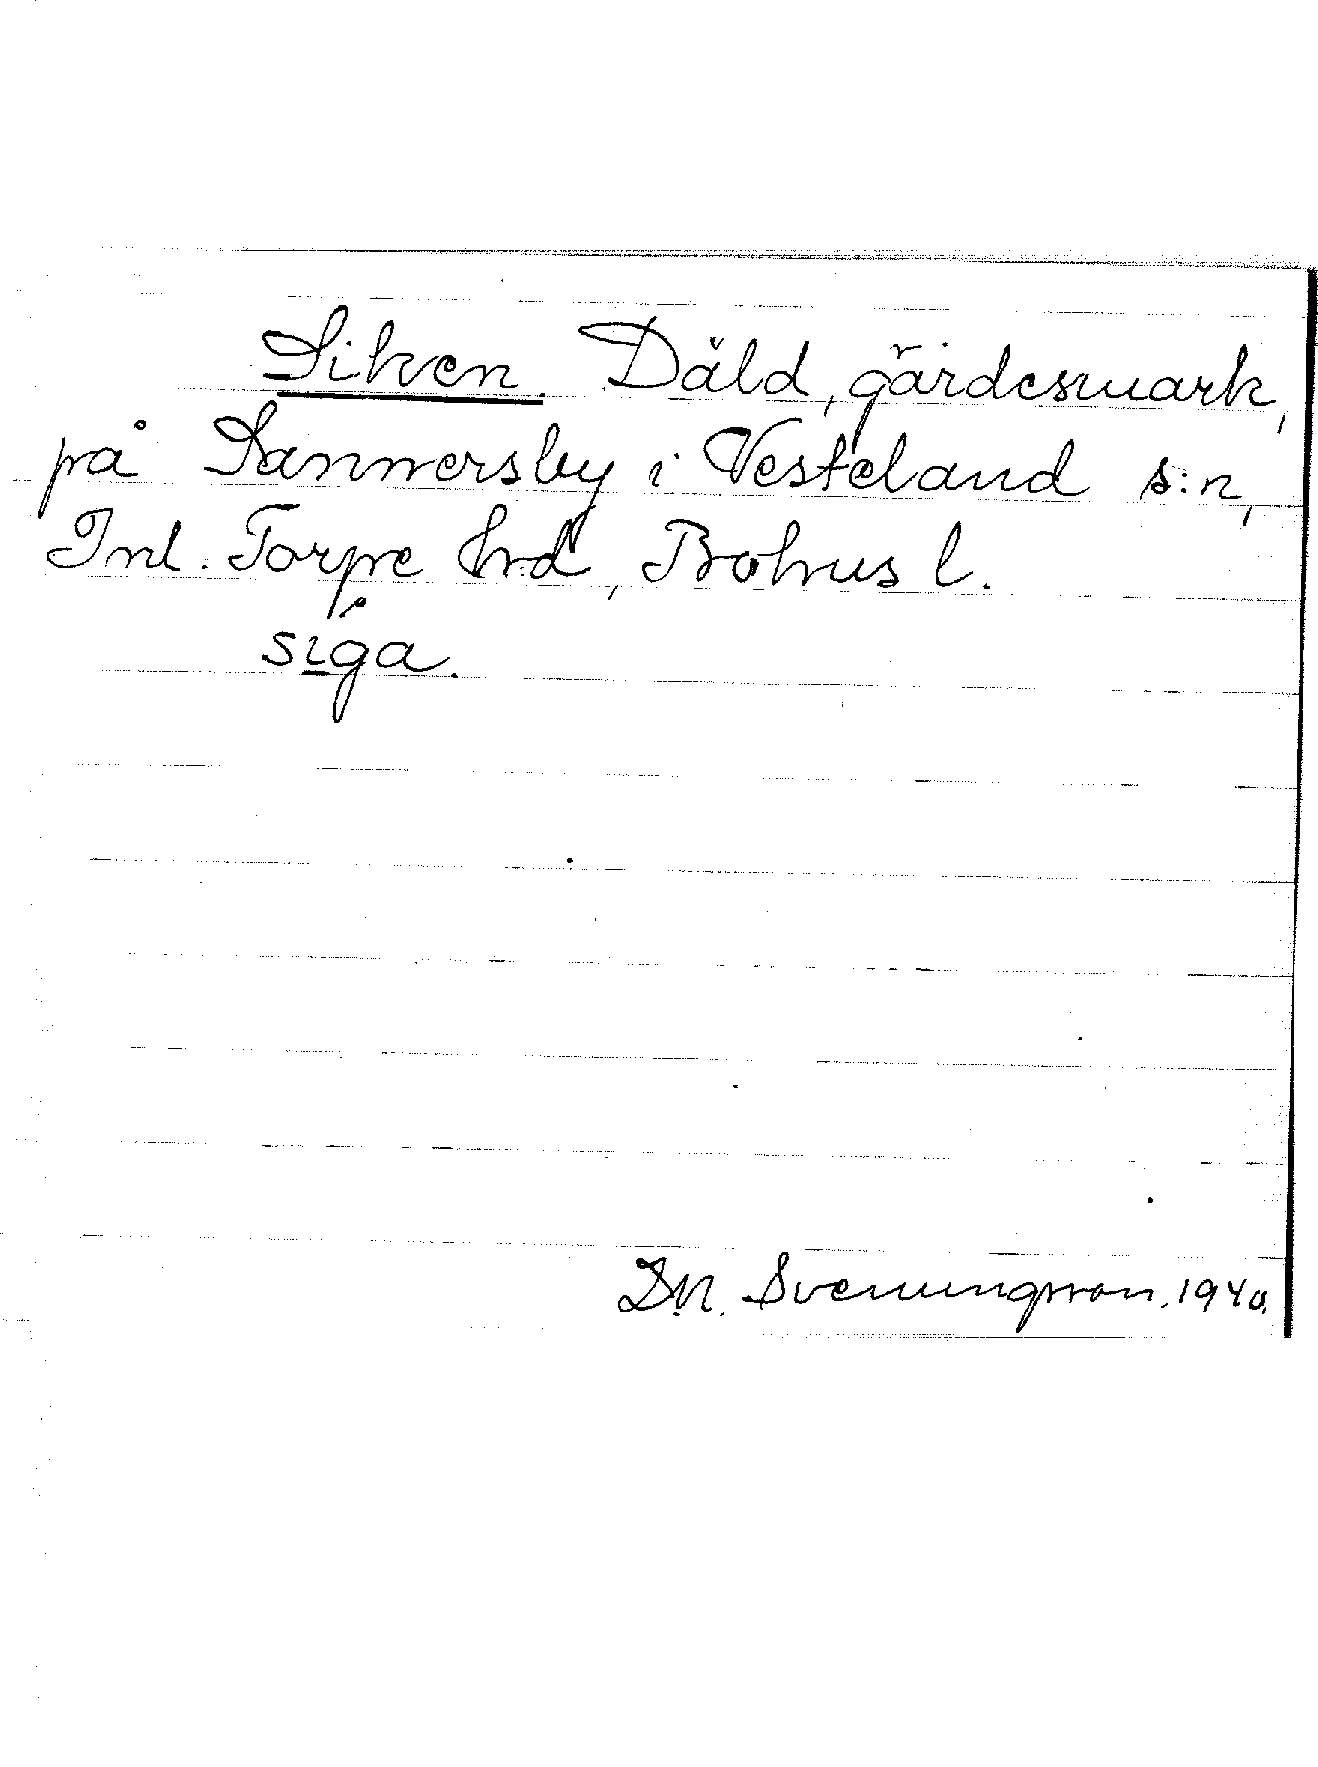 Siken Däld, gärdesmark,
på Sannersby i Vesteland s:n,
Inl. Torpe hrd, Bohus l.
síga.
D.N. Svenungsson. 1940.